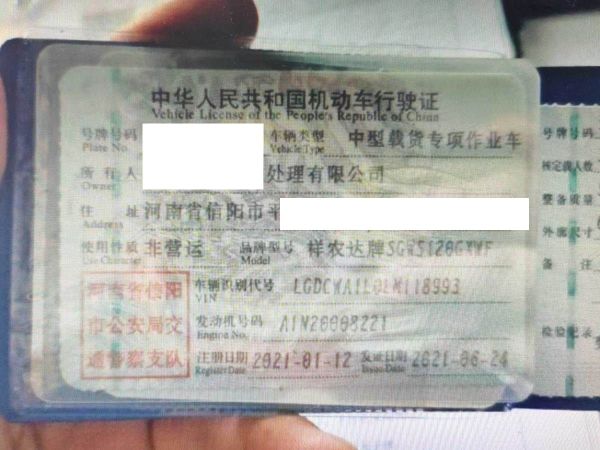 中华人民共和国机动车行驶证
Vehicle License of the People's Republic of China
号牌号码 车辆类型 中型载货专项作业车
Plate No. Vehicle Type
所有人 处理有限公司
Owner
住址 河南省信阳市平
Address
使用性质 非营运 品牌型号 祥农达牌SGW5120GXWF
Use Character Model
河南省信阳
市公安局交
通警察支队
车辆识别代号 LGDCWA1L0LM118993
VIN
发动机号码 A1N20008221
Engine No.
注册日期 2021-01-12 发证日期 2021-06-24
Register Date Issue Date
号牌号码
核定载人数
整备质量
外廓尺寸
备注
检验记录